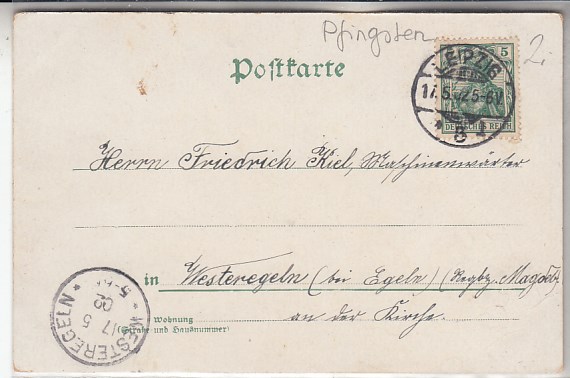 Pfingsten
2.
Postkarte
5
DEUTSCHES REICH
LEIPZIG
17.5.02 5-6N
* 8
Herrn Friedrich Kiel, Maschinenwärter
in Westeregeln (bei Egeln) (Regbz. Magdeb.
an der Kirche.
Wohnung
(Straße und Hausnummer)
* WESTEREGELN *
17 5